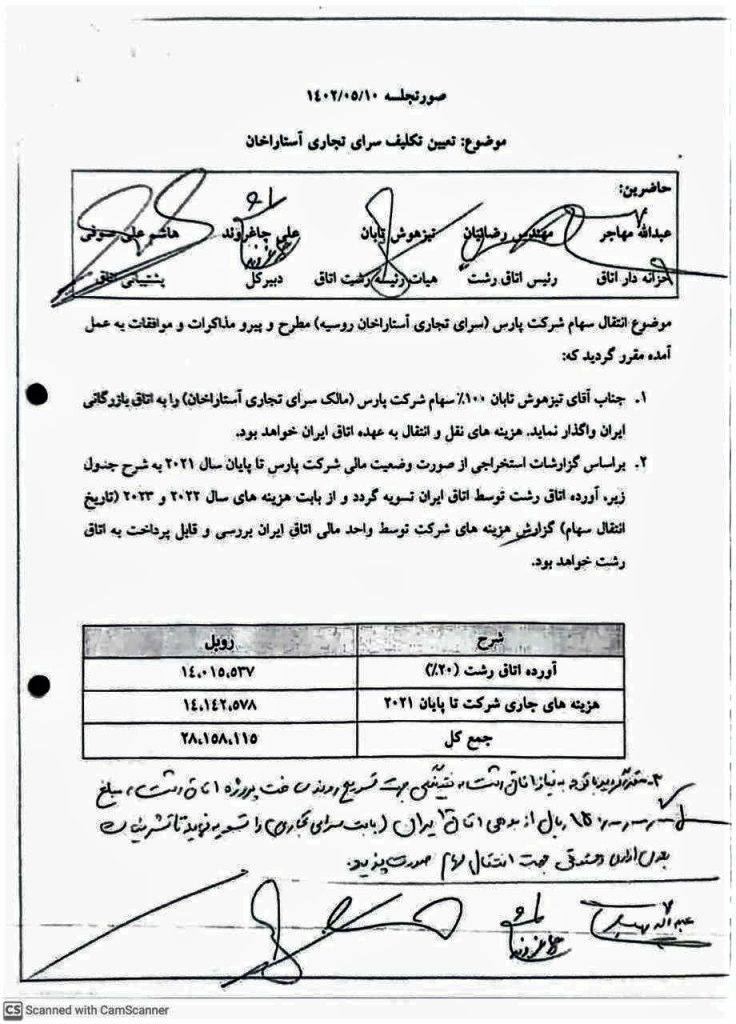 صورتجلسه ۱۴۰۲/۰۵/۱۰
موضوع: تعیین تکلیف سرای تجاری آستاراخان
حاضرین:
عبدالله مهاجر مهندس رضائیان تیزهوش تابان علی چاغروند هاشم علی صوفی
خزانه دار اتاق رئیس اتاق رشت هیات رئیسه رشت اتاق دبیرکل پشتیبانی اتاق
موضوع انتقال سهام شرکت پارس (سرای تجاری آستاراخان روسیه) مطرح و پیرو مذاکرات و موافقات به عمل
آمده مقرر گردید که:
۱. جناب آقای تیزهوش تابان ۱۰۰٪ سهام شرکت پارس (مالک سرای تجاری آستاراخان) را به اتاق بازرگانی
ایران واگذار نماید. هزینه های نقل و انتقال به عهده اتاق ایران خواهد بود.
۲. براساس گزارشات استخراجی از صورت وضعیت مالی شرکت پارس تا پایان سال ۲۰۲۱ به شرح جدول
زیر، آورده اتاق رشت توسط اتاق ایران تسویه گردد و از بابت هزینه های سال ۲۰۲۲ و ۲۰۲۳ (تاریخ
انتقال سهام) گزارش هزینه های شرکت توسط واحد مالی اتاق ایران بررسی و قابل پرداخت به اتاق
رشت خواهد بود.
شرح روبل
آورده اتاق رشت (۲۰٪) ۱۴،۰۱۵،۵۳۷
هزینه های جاری شرکت تا پایان ۲۰۲۱ ۱۴،۱۴۲،۵۷۸
جمع کل ۲۸،۱۵۸،۱۱۵
۳- مقرر گردید با توجه به نیاز اتاق رشت به نقدینگی جهت تسریع روند ساخت پروژه اتاق رشت، مبلغ
ریال از بدهی اتاق ایران (بابت سرای تجاری) را تسویه نماید تا تشریفات
اداری و حقوقی جهت انتقال سهام صورت پذیرد.
چاغروند
CS Scanned with CamScanner